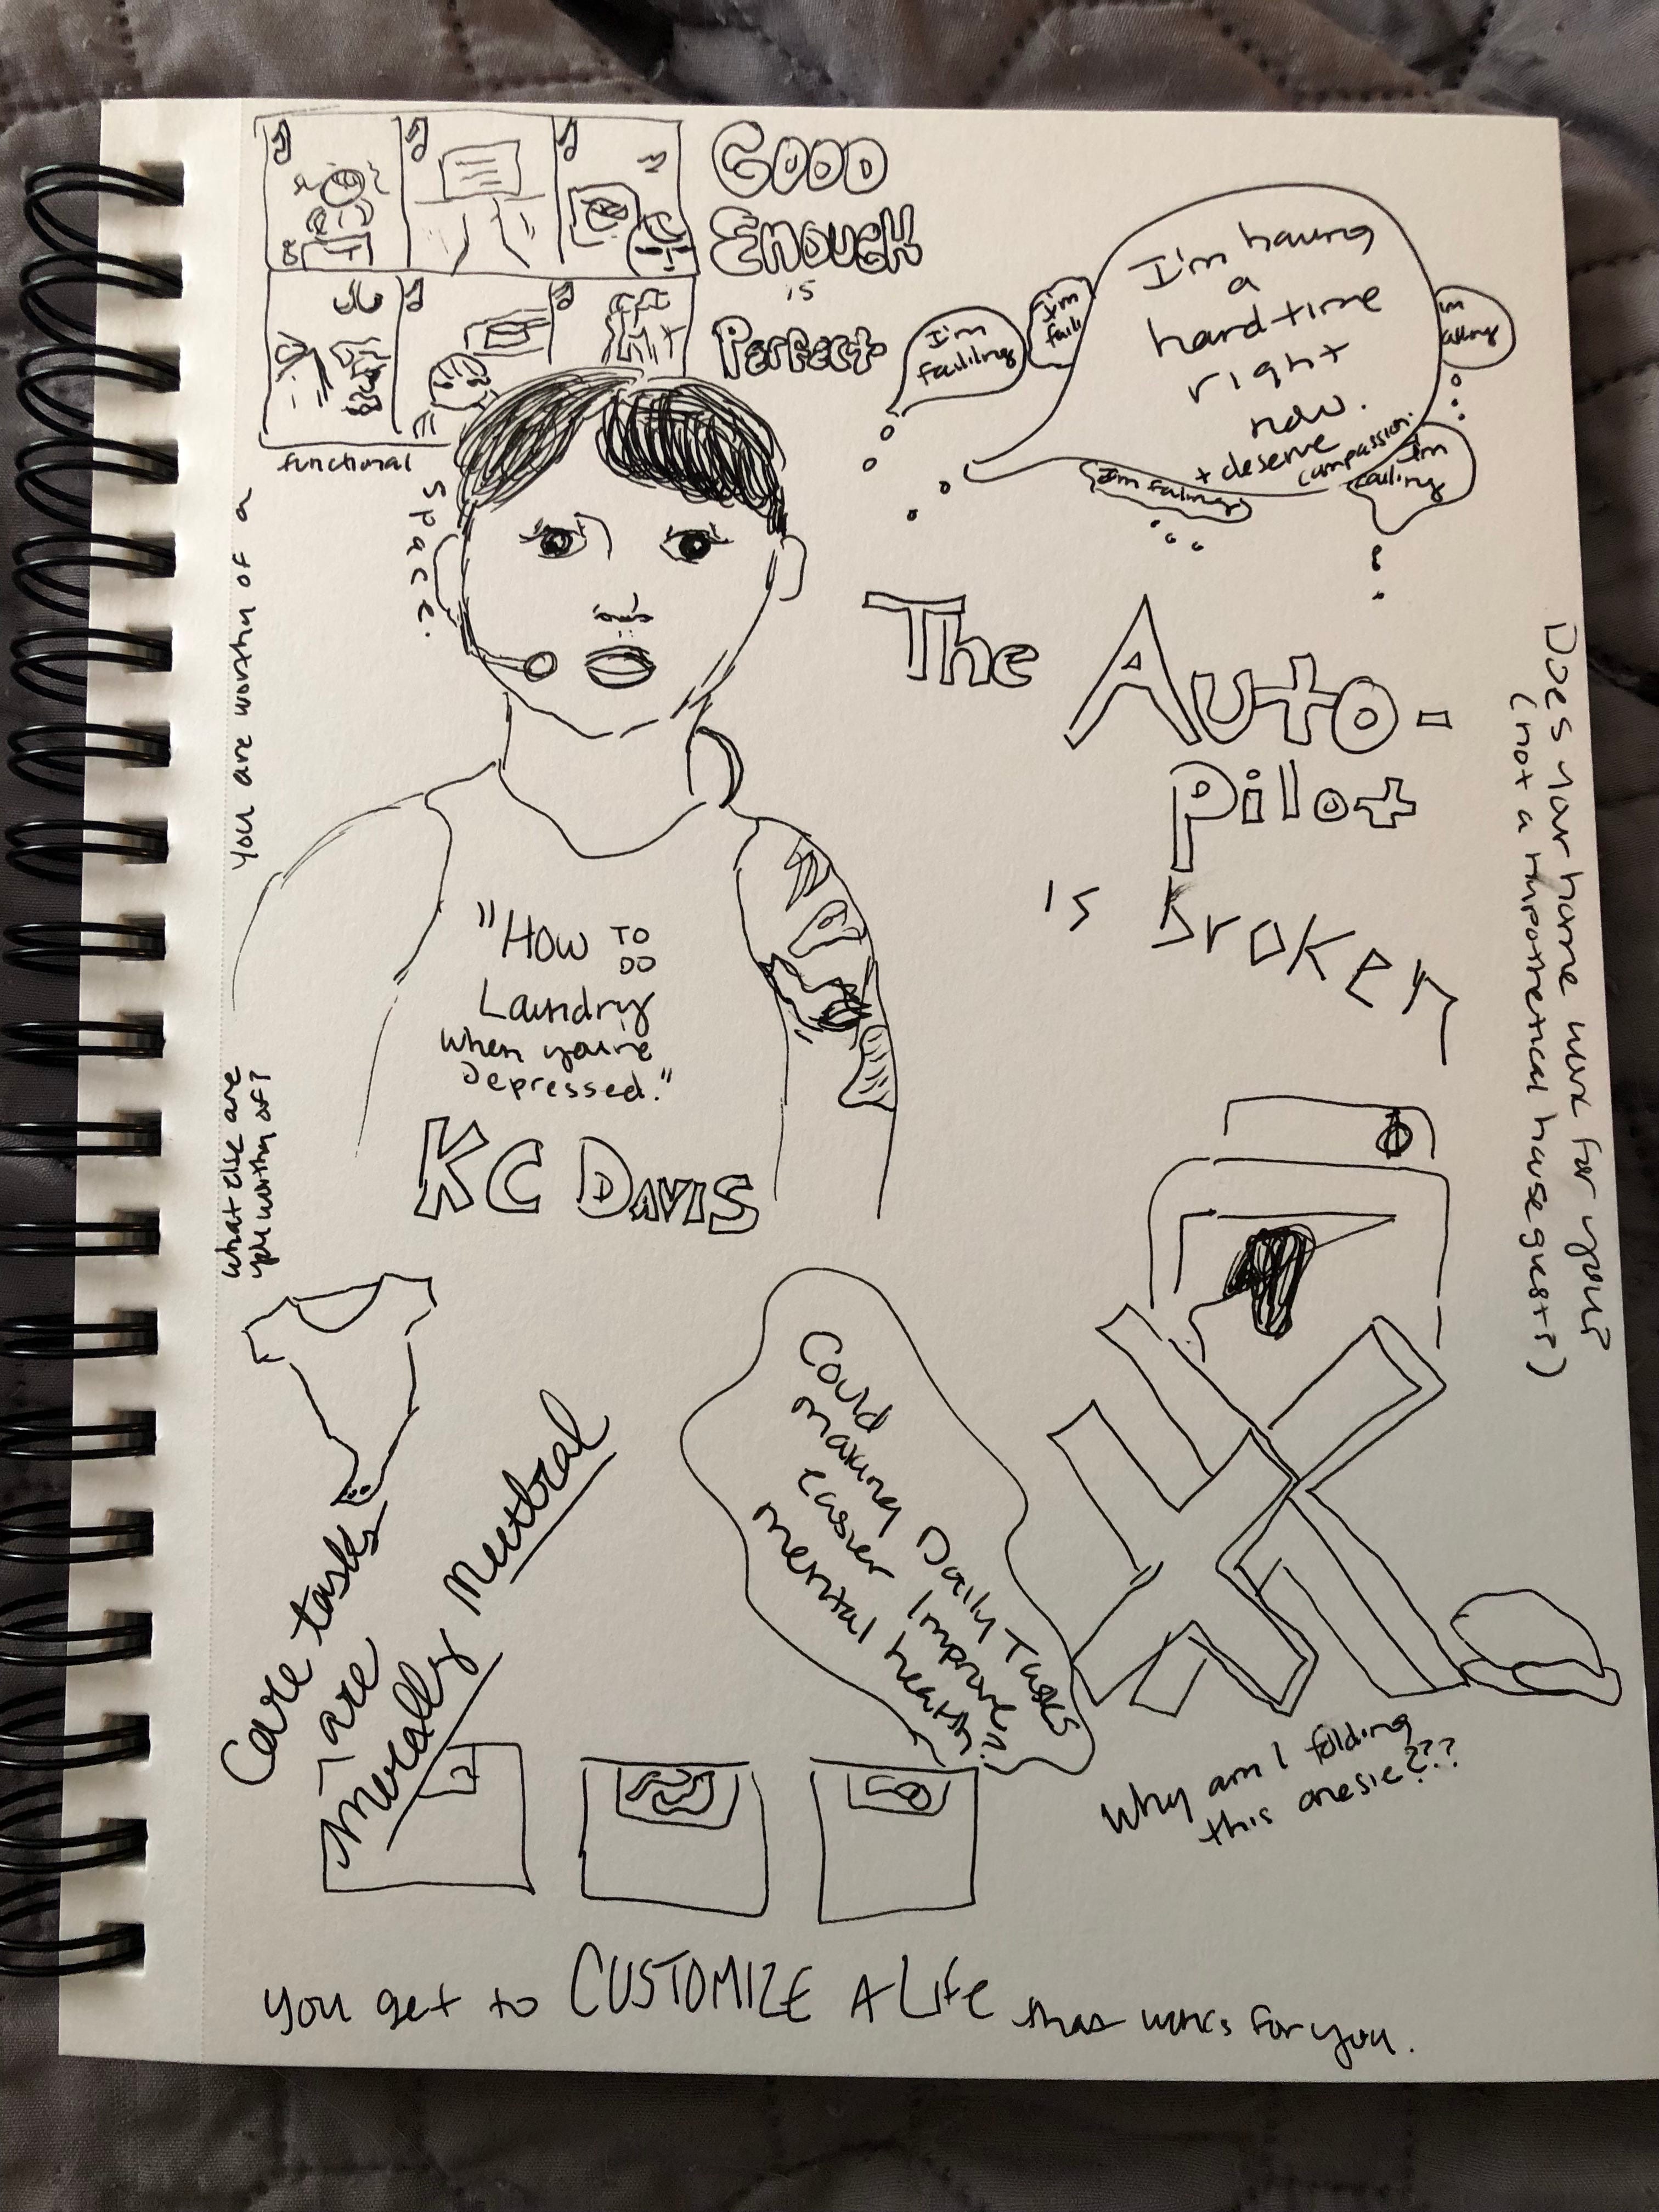 GOOD
ENOUGH
is
Perfect
I'm
failing
I'm
faili
I'm having
a
hard time
right
now.
+ deserve
compassion.
Im
ailing
I'm failing
I'm
failing
You are worthy of a
functional
space.
The Auto-
Pilot
is Broken
Does your home work for you?
(not a hypothetical houseguest?)
"How TO
DO
Laundry
When you're
Depressed."
KC DAVIS
What else are
you worthy of?
Care tasks
are
Morally Neutral
Could
making Daily Tasks
easier Improve
mental health?
Why am I folding
this onesie???
You get to CUSTOMIZE A Life that works for you.